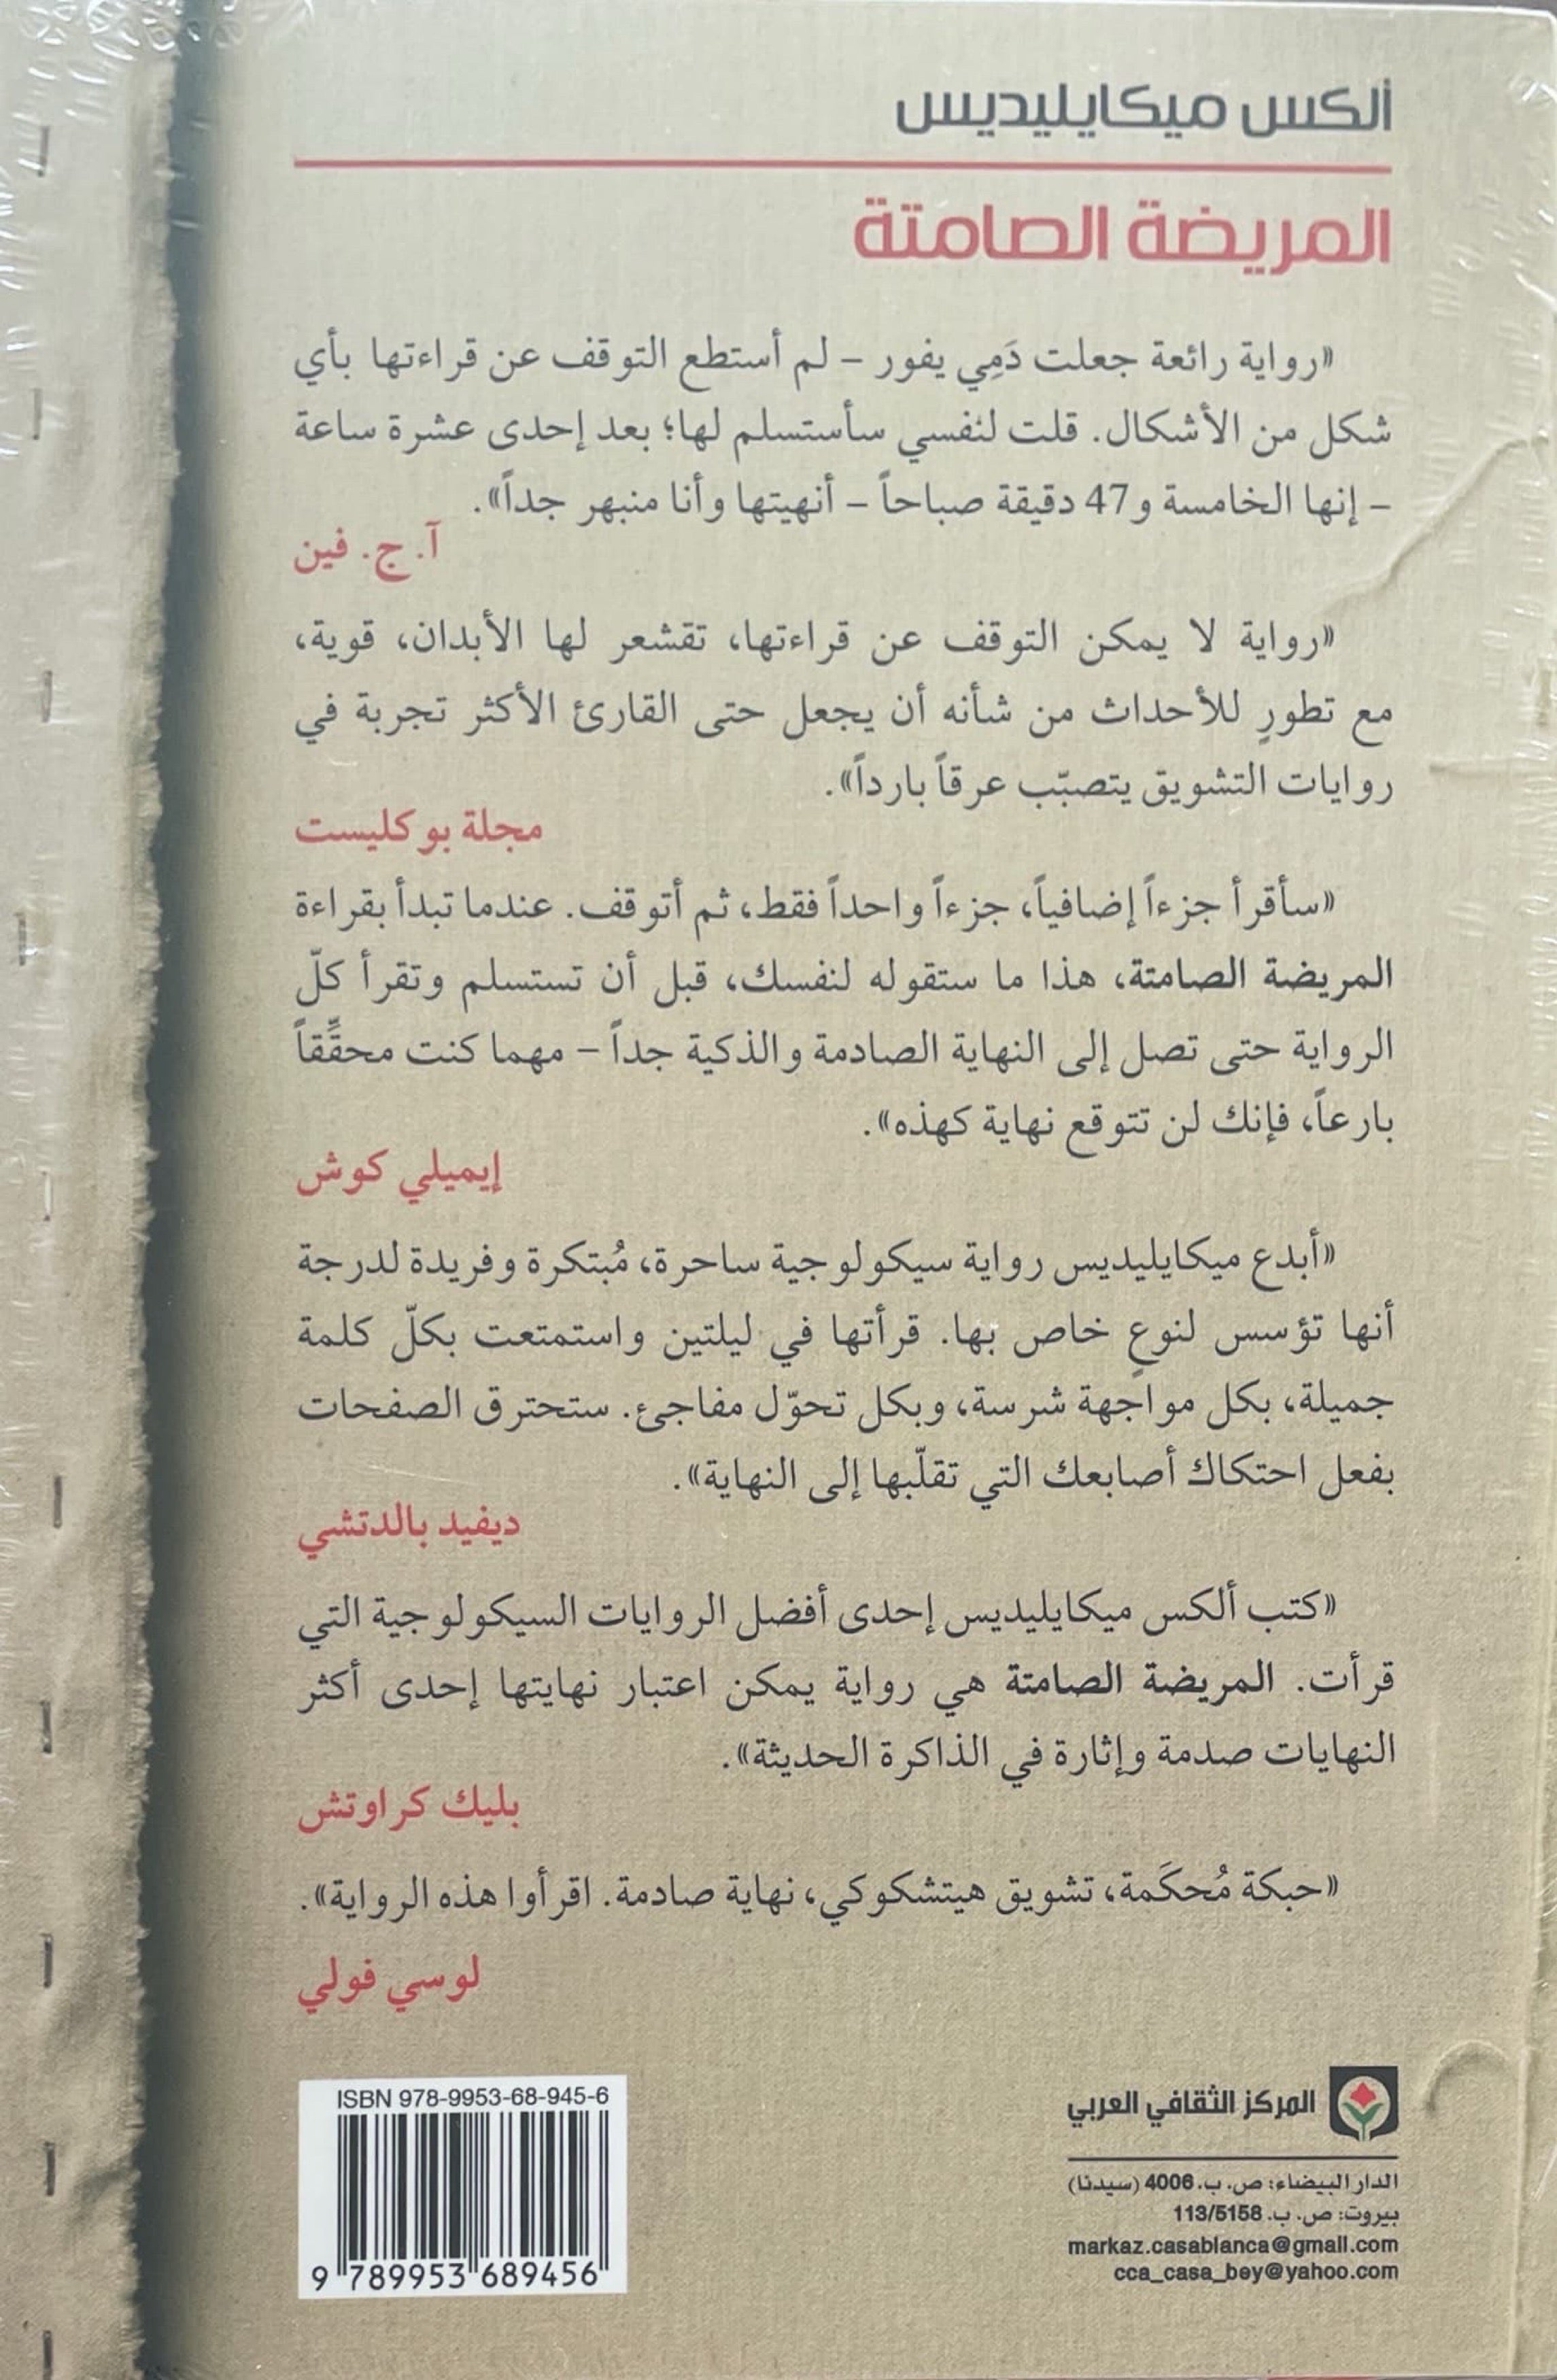 ألكس ميكايليديس
المريضة الصامتة
«رواية رائعة جعلت دَمِي يفور – لم أستطع التوقف عن قراءتها بأي
شكل من الأشكال. قلت لنفسي سأستسلم لها؛ بعد إحدى عشرة ساعة
– إنها الخامسة و47 دقيقة صباحاً – أنهيتها وأنا منبهر جداً».
آ. ج. فين
«رواية لا يمكن التوقف عن قراءتها، تقشعر لها الأبدان، قوية،
مع تطورٍ للأحداث من شأنه أن يجعل حتى القارئ الأكثر تجربة في
روايات التشويق يتصبّب عرقاً بارداً».
مجلة بوكليست
«سأقرأ جزءاً إضافياً، جزءاً واحداً فقط، ثم أتوقف. عندما تبدأ بقراءة
المريضة الصامتة، هذا ما ستقوله لنفسك، قبل أن تستسلم وتقرأ كلّ
الرواية حتى تصل إلى النهاية الصادمة والذكية جداً – مهما كنت محقِّقاً
بارعاً، فإنك لن تتوقع نهاية كهذه».
إيميلي كوش
«أبدع ميكايليديس رواية سيكولوجية ساحرة، مُبتكرة وفريدة لدرجة
أنها تؤسس لنوعٍ خاص بها. قرأتها في ليلتين واستمتعت بكلّ كلمة
جميلة، بكل مواجهة شرسة، وبكل تحوّل مفاجئ. ستحترق الصفحات
بفعل احتكاك أصابعك التي تقلّبها إلى النهاية».
ديفيد بالدتشي
«كتب ألكس ميكايليديس إحدى أفضل الروايات السيكولوجية التي
قرأت. المريضة الصامتة هي رواية يمكن اعتبار نهايتها إحدى أكثر
النهايات صدمة وإثارة في الذاكرة الحديثة».
بليك كراوتش
«حبكة مُحكَمة، تشويق هيتشكوكي، نهاية صادمة. اقرأوا هذه الرواية».
لوسي فولي
المركز الثقافي العربي
الدار البيضاء: ص. ب. 4006 (سيدنا)
بيروت: ص. ب. 113/5158
markaz.casablanca@gmail.com
cca_casa_bey@yahoo.com
ISBN 978-9953-68-945-6
9 789953 689456